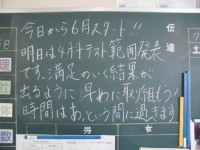 今日から6月スタート!!
明日は4ホ計テスト範囲発表
です。満足のいく結果が
出るように早めに取り組もう!
時間はあっという間に過ぎます
伝達
土
理
体
数
男 女